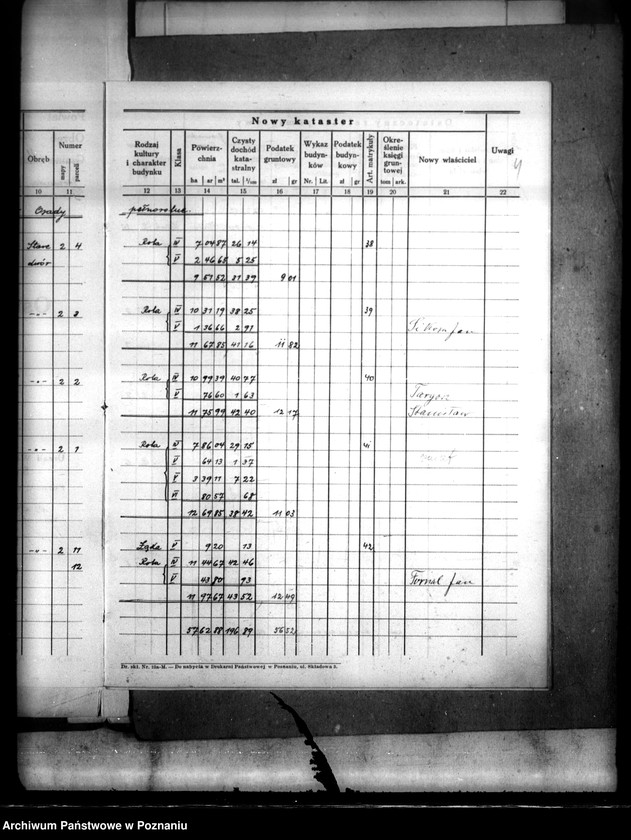 Nowy kataster
Obręb | Numer mapy | parceli | Rodzaj kultury i charakter budynku | Klasa | Powierzchnia ha ar m² | Czysty dochód katastralny tal. ¹/₁₀₀ | Podatek gruntowy zł gr | Wykaz budynków Nr. Lit. | Podatek budynkowy zł gr | Art. matrykuły | Określenie księgi gruntowej tom ark. | Nowy właściciel | Uwagi
10 11 12 13 14 15 16 17 18 19 20 21 22
4
Osady
Stare 2 4 Rola IV 7 04 87 26 14 38
dwór V 2 46 65 5 25
9 51 52 31 39 9 01
-"- 2 3 Rola IV 10 31 19 38 25 39
V 1 36 66 2 91 Jan
11 67 85 41 16 11 82
-"- 2 2 Rola IV 10 99 39 40 77 40
V 76 60 1 63
11 75 99 42 40 12 17 Stanisław
-"- 2 1 Rola 7 86 04 29 15 41
V 64 13 1 37
V 3 39 11 7 22
VI 80 57 68
12 69 85 38 42 11 03
-"- 2 11 V 9 20 13 42
12 Rola IV 11 44 67 42 46
V 43 80 93 Fornal Jan
11 97 67 43 52 12 49
57 62 88 196 89 56 52
Dr. okl. Nr. — Do nabycia w Drukarni Państwowej w Poznaniu, ul. Składowa
Archiwum Państwowe w Poznaniu